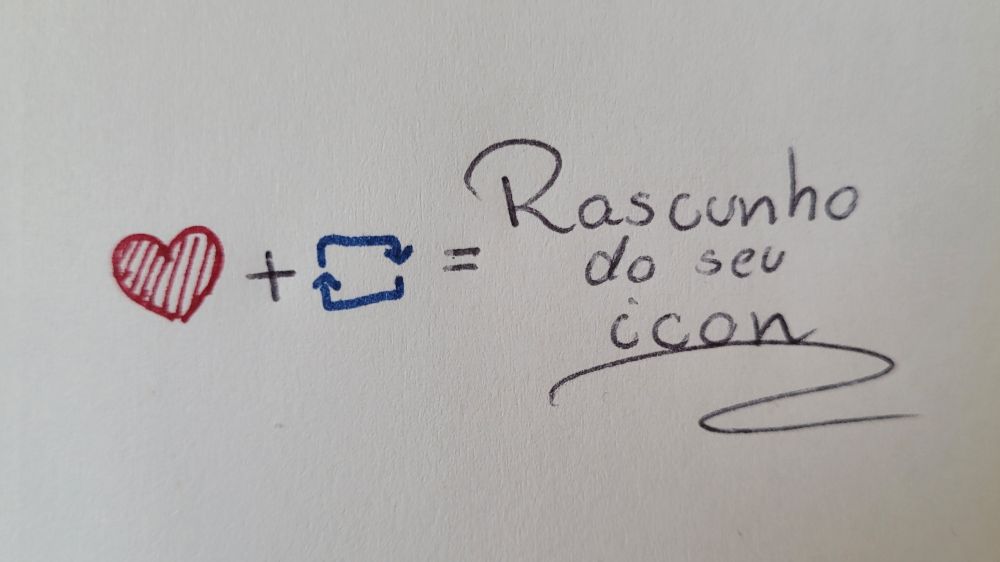 + = Rascunho
do seu
icon